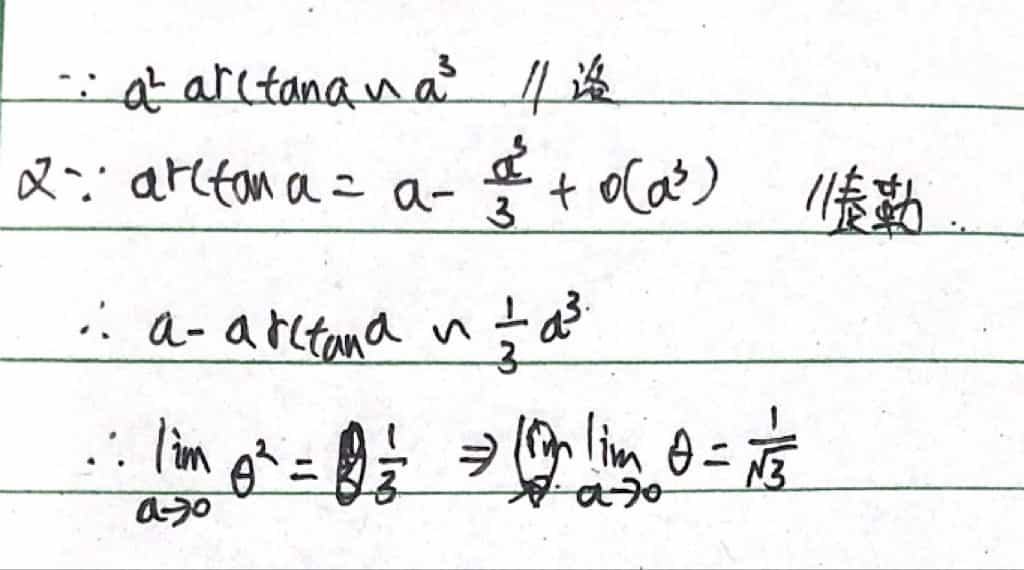 ∵ a² arctan a ~ a³ // 洛
又∵ arctan a = a - a³/3 + o(a³) // 泰勒.
∴ a - arctan a ~ 1/3 a³
∴ lim a→0 θ² = 1/3 ⇒ lim a→0 θ = 1/√3